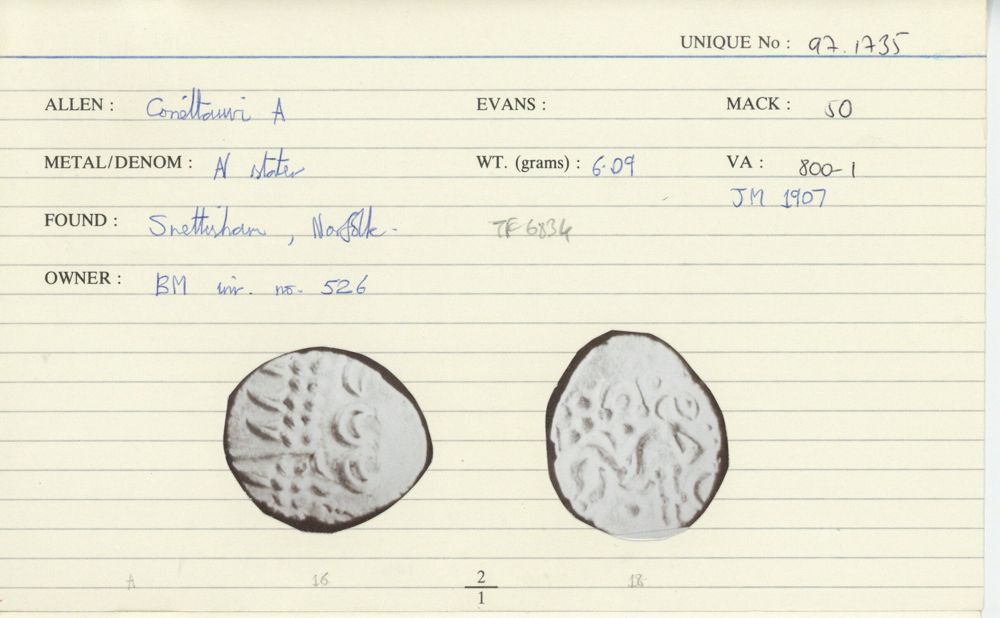 UNIQUE No : 97.1735
ALLEN : Coriéltauvi A EVANS : MACK : 50
METAL/DENOM : N stater WT. (grams) : 6.09 VA : 800-1
JM 1907
FOUND : Snettisham, Norfolk. TF 6834
OWNER : BM inv. no. 526
A 16 2 18
1